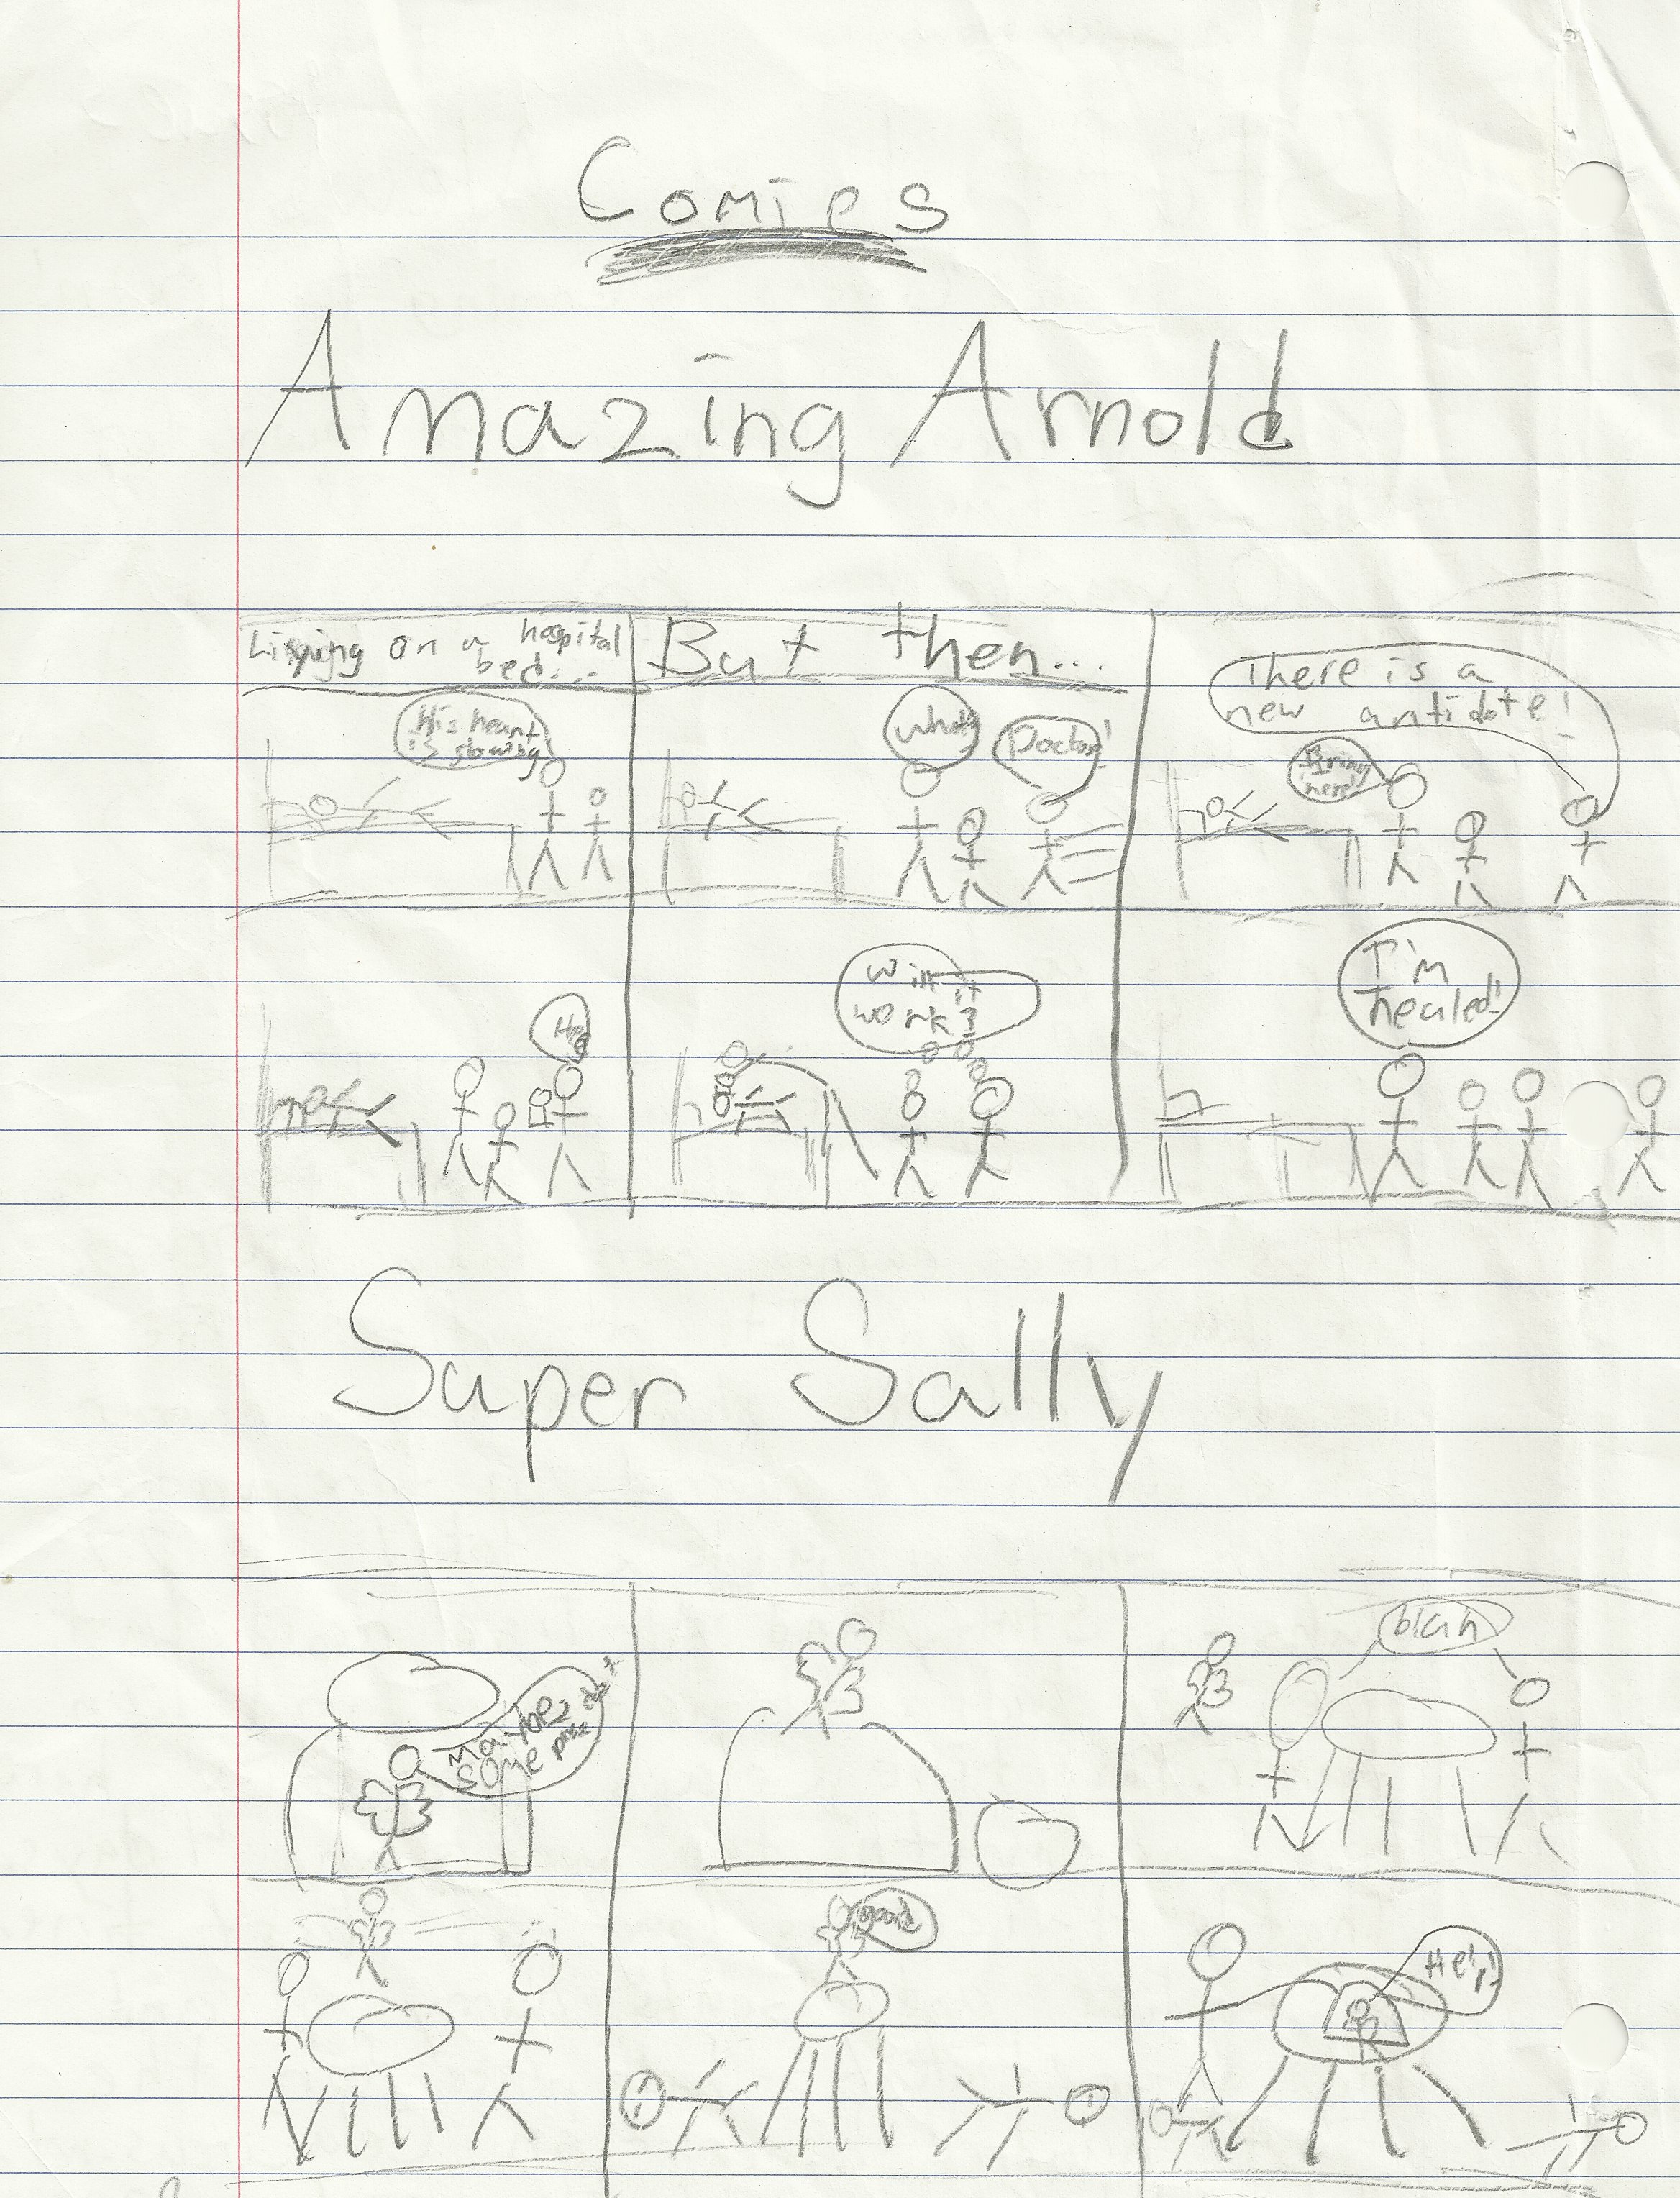 Comics
Amazing Arnold
on a hospital
bed...
His heart
is slowing
But then...
What?
Doctor!
There is a
new antidote!
Bring
here!
Will it
work?
I'm
healed!
Super Sally
Maybe
some
blah
good
Help!